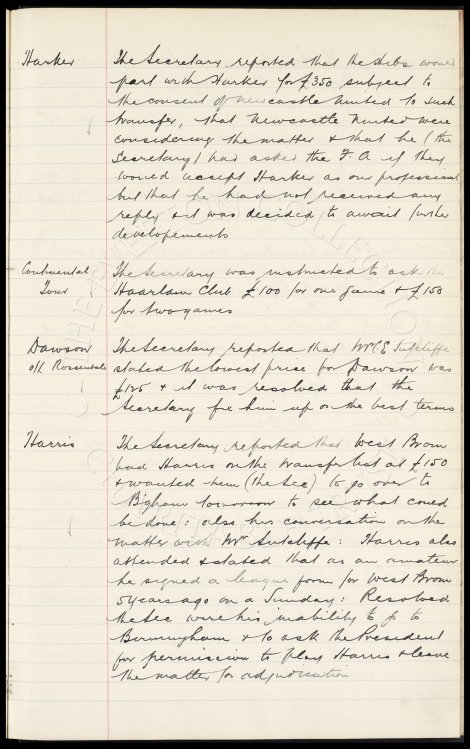 Harker The Secretary reported that the Hibs would
part with Harker for £350 subject to
the consent of Newcastle United to such
transfer, that Newcastle United were
considering the matter & that he (the
Secretary) had asked the F.A. if they
would accept Harker as our professional
but that he had not received any
reply & it was decided to await further
developements
Continental The Secretary was instructed to ask the
Tour Haarlam Club £100 for one game & £150
for two games
Dawson The Secretary reported that Mr C E Sutcliffe
o/l Rossendale stated the lowest price for Dawson was
£125 & it was resolved that the
Secretary fix him up on the best terms
Harris The Secretary reported that West Brom
had Harris on the transfer list at £150
& wanted him (the Sec) to go over to
B'gham tomorrow to see what could
be done: also his conversation on the
matter with Mr Sutcliffe: Harris also
attended & stated that as an amateur
he signed a league form for West Brom
5 years ago on a Sunday: Resolved
the Sec wire his inability to go to
Birmingham & to ask the President
for permission to play Harris & leave
the matter for adjudication